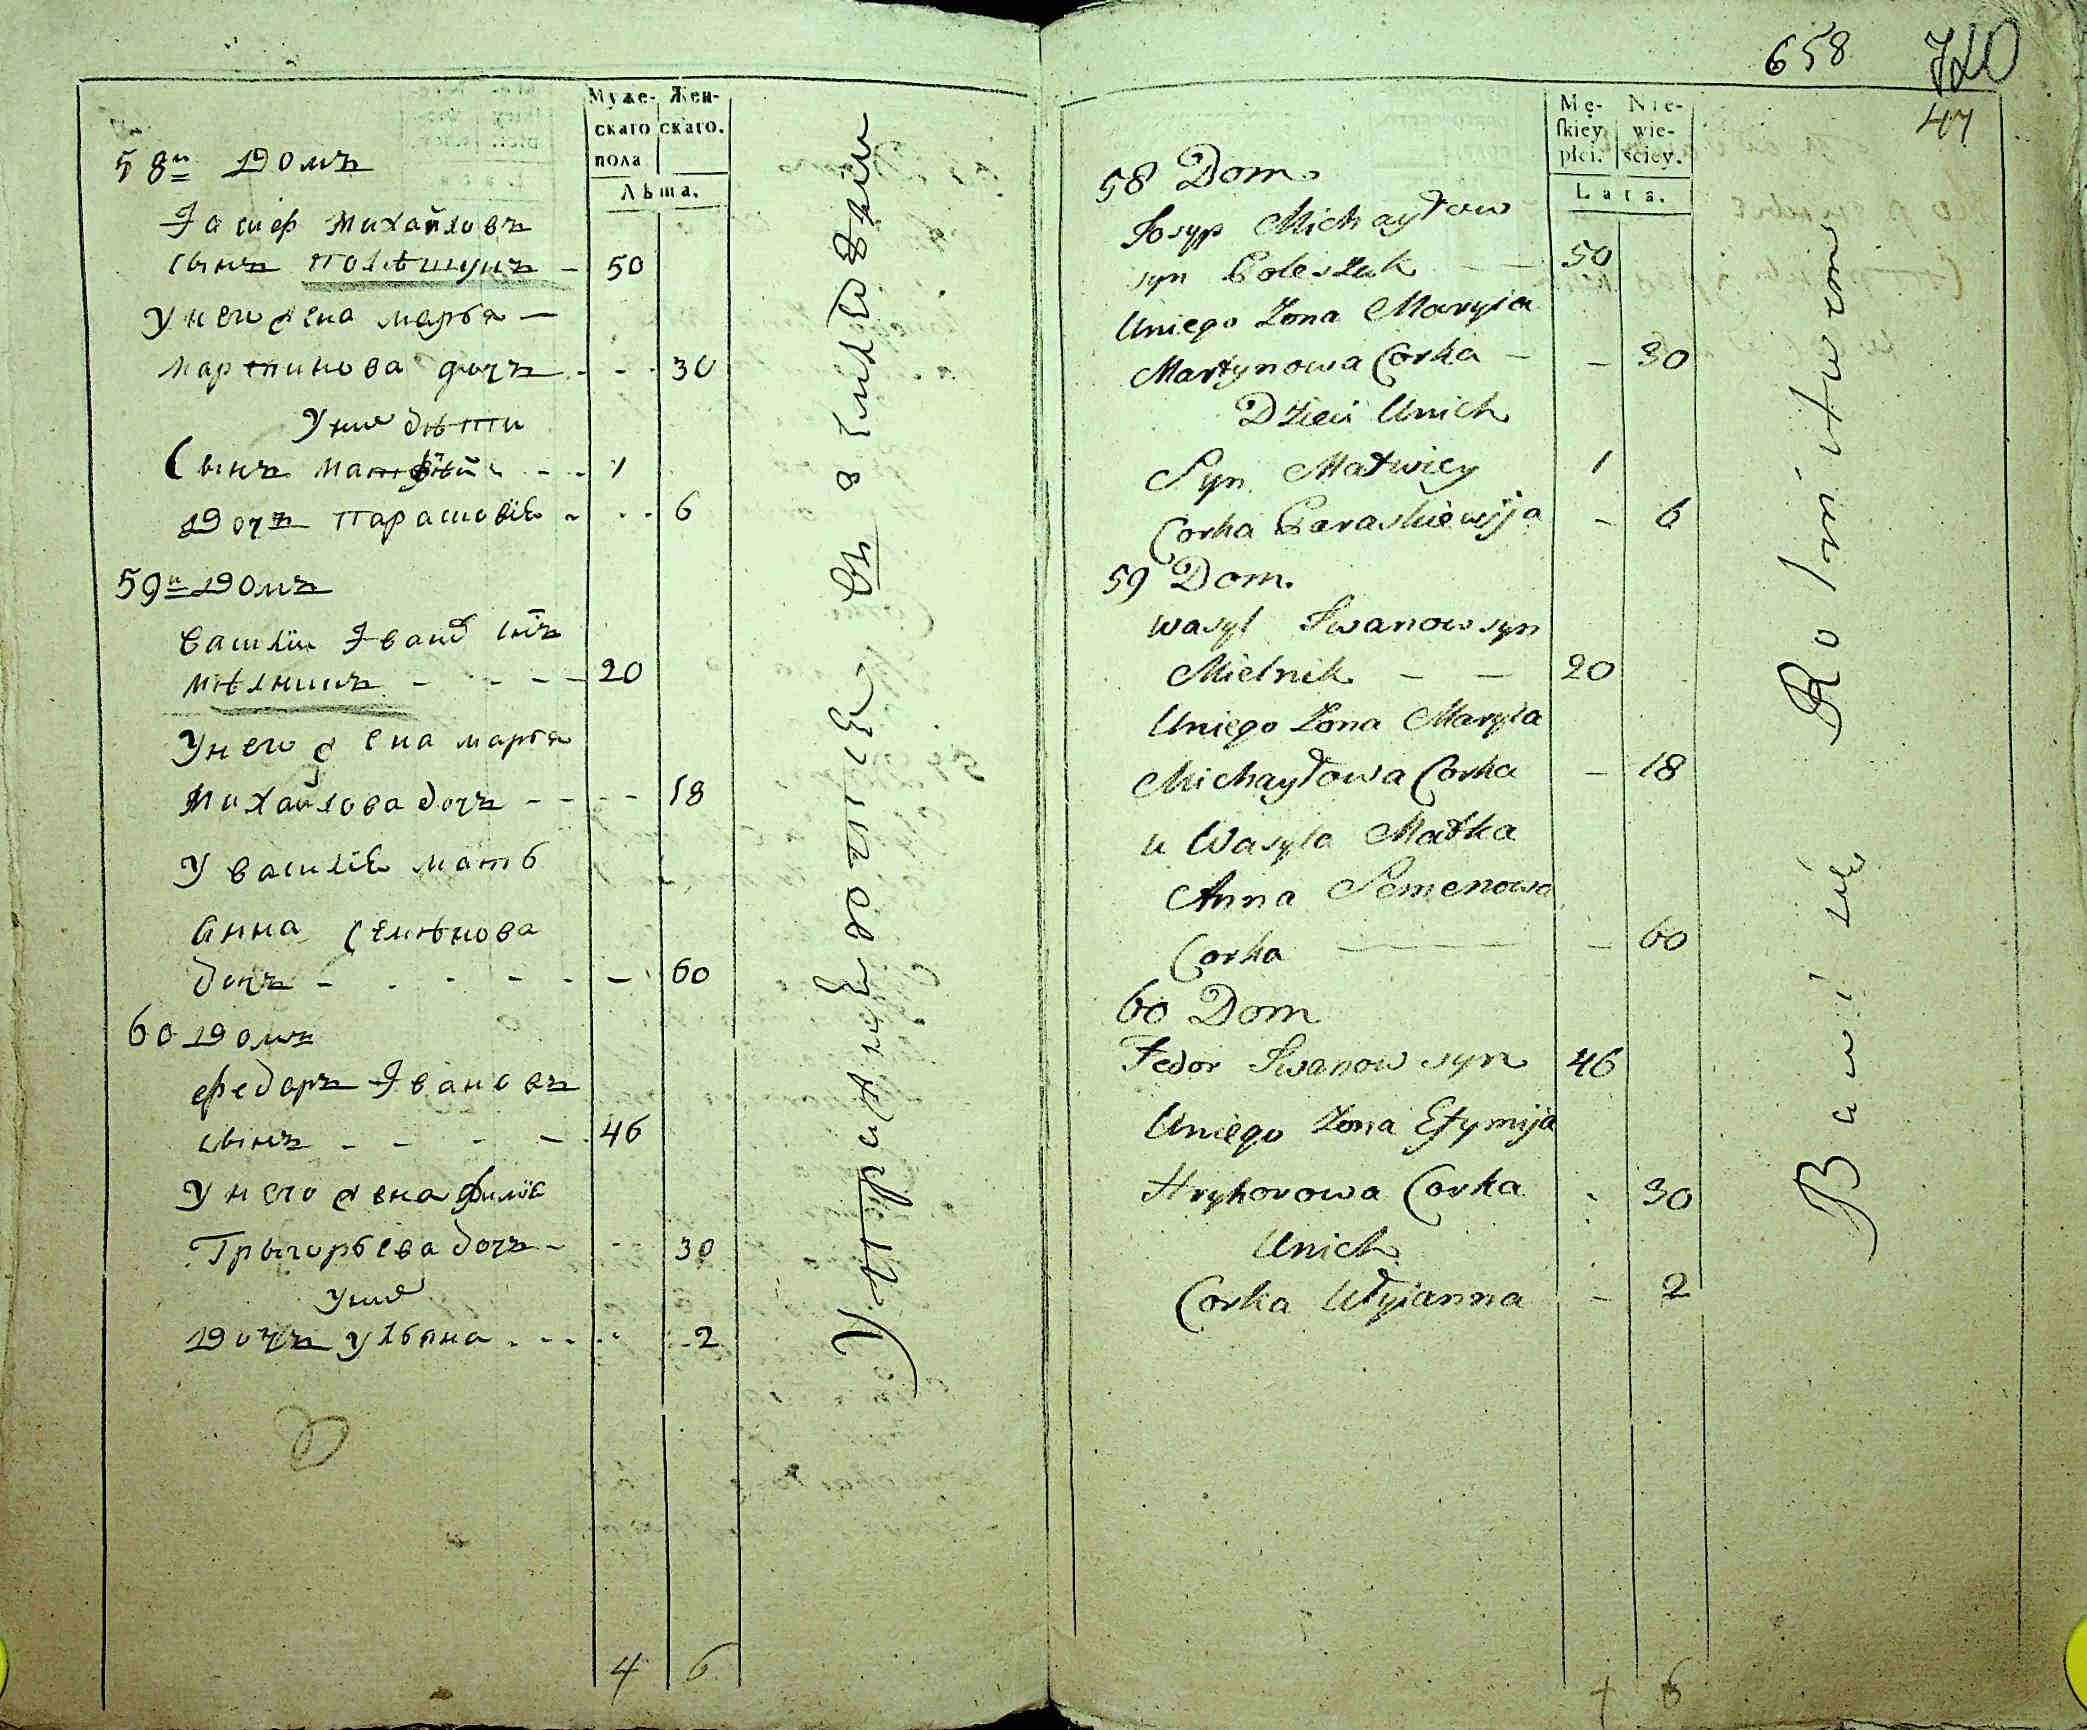 Муже- Жен-
скаго скаго.
пола
Лѣта.
58й Домъ
Іосиф Михайловъ
сынъ Полѣшукъ - 50
У него жена марья -
мартинова дочъ - - - 30
У них дѣти
Сынъ матфѣй - - 1
Дочъ Парасковія - - - 6
59й Домъ
Василій Іванов снъ
мѣлникъ - - - - 20
У него жена марья
Михайлова дочъ - - - - 18
У василія мать
Анна Семѣнова
дочъ - - - - - - 60
60 Домъ
федоръ Івановъ
сынъ - - - - 46
У него жена
Грыгорьева дочъ - - - 30
У них
Дочъ Ульяна - - - - 2
4 6
658 720
47
Mę- Nie-
ſkiey wie-
płci. ściey.
Lata.
58 Dom
Josyp Michayłow
syn Poleszuk - - 50
Uniego Zona Maryia
Martynowa Corka - - 30
Dzieci Unich
Syn Matwiey 1
Corka Paraskiewija - 6
59 Dom.
Wasyl Iwanow syn
Mielnik - - 20
Uniego Zona Maryia
Michayłowa Corka - 18
u Wasyla Matka
Anna Semenowa
Corka - 60
60 Dom
Fedor Iwanow syn 46
Uniego Zona Efymija
Hryhorowa Corka 30
Unich
Corka Ułyianna - 2
Bawi się Rolnictwem
4 6